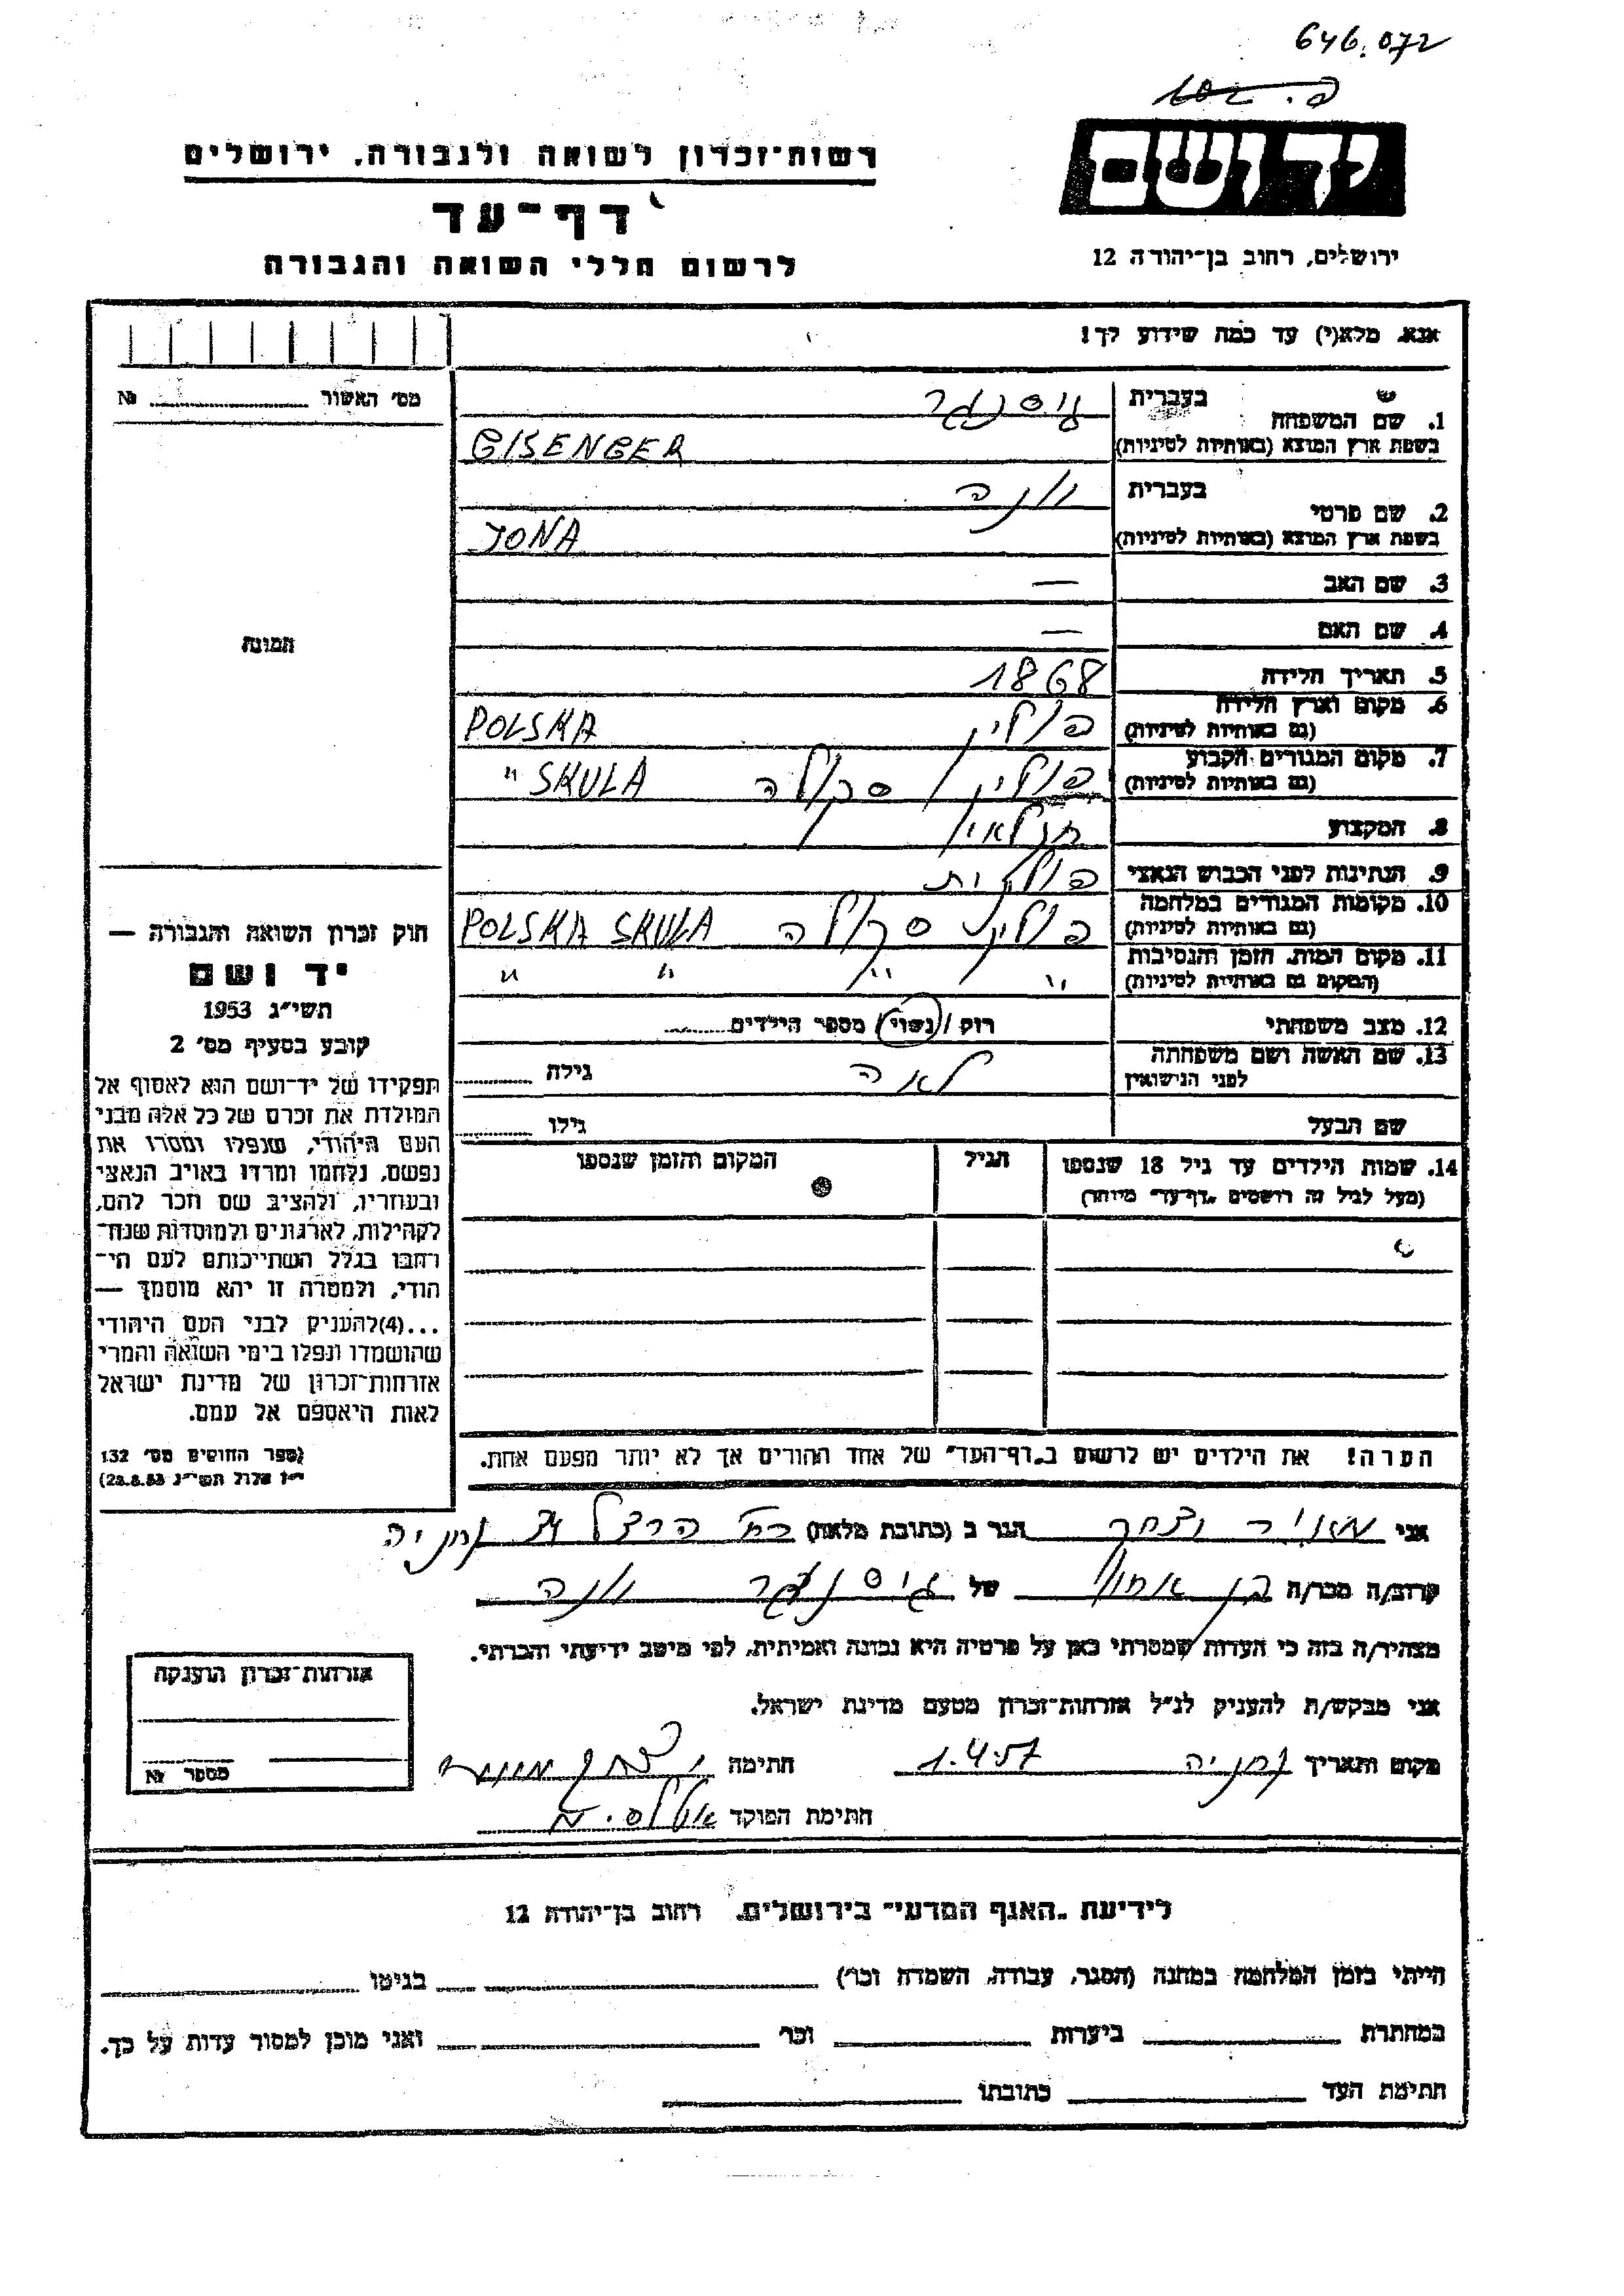 646.072
יד ושם
רשות־זכרון לשואה ולגבורה, ירושלים
דף־עד
לרשום חללי השואה והגבורה
ירושלים, רחוב בן־יהודה 12
אנא, מלא(י) עד כמה שידוע לך!
מס' האשור № 
1. שם המשפחה
בעברית גיסנגר
בשפת ארץ המוצא (באותיות לטיניות) GISENGER
2. שם פרטי
בעברית יונה
בשפת ארץ המוצא (באותיות לטיניות) JONA
3. שם האב —
4. שם האם —
5. תאריך הלידה 1868
6. מקום וארץ הלידה
(גם באותיות לטיניות) פולין POLSKA
7. מקום המגורים הקבוע
(גם באותיות לטיניות) פולין סקולה " SKULA
8. המקצוע חקלאי
9. הנתינות לפני הכבוש הנאצי פולנית
10. מקומות המגורים במלחמה
(גם באותיות לטיניות) פולין סקולה POLSKA SKULA
11. מקום המות, הזמן והנסיבות
(המקום גם באותיות לטיניות) " " " "
12. מצב משפחתי רוק/נשוי/ מספר הילדים
13. שם האשה ושם משפחתה
לפני הנישואין לאה גילה
שם הבעל גילו
14. שמות הילדים עד גיל 18 שנספו
(מעל לגיל זה רושמים "דף־עד" מיוחד)
הגיל
המקום והזמן שנספו
הערה! את הילדים יש לרשום ב"דף־העד" של אחד ההורים אך לא יותר מפעם אחת.
תמונה
חוק זכרון השואה והגבורה —
יד ושם
תשי"ג 1953
קובע בסעיף מס' 2
תפקידו של יד־ושם הוא לאסוף אל
המולדת את זכרם של כל אלה מבני
העם היהודי, שנפלו ומסרו את
נפשם, נלחמו ומרדו באויב הנאצי
ובעוזריו, ולהציב שם וזכר להם,
לקהילות, לארגונים ולמוסדות שנח־
רבו בגלל השתייכותם לעם הי־
הודי, ולמטרה זו יהא מוסמך —
...(4)להעניק לבני העם היהודי
שהושמדו ונפלו בימי השואה והמרי
אזרחות־זכרון של מדינת ישראל
לאות היאספם אל עמם.
(ספר החוקים מס' 132
י"ז אלול תשי"ג 28.8.53)
אני מאיר יצחק הגר ב (כתובת מלאה) רח' הרצל נתניה
קרוב/ה מכר/ה בן אחות של גיסנגר יונה
מצהיר/ה בזה כי העדות שמסרתי כאן על פרטיה היא נכונה ואמיתית, לפי מיטב ידיעתי והכרתי.
אני מבקש/ת להעניק לנ"ל אזרחות־זכרון מטעם מדינת ישראל.
מקום ותאריך נתניה 1.4.57 חתימה יצחק מאיר
חתימת הפוקד
אזרחות־זכרון הוענקה
מספר №
לידיעת "האגף המדעי" בירושלים, רחוב בן־יהודה 12
הייתי בזמן המלחמה במחנה (הסגר, עבודה, השמדה וכו') בגיטו
במחתרת ביערות וכו' ואני מוכן למסור עדות על כך.
חתימת העד כתובתו